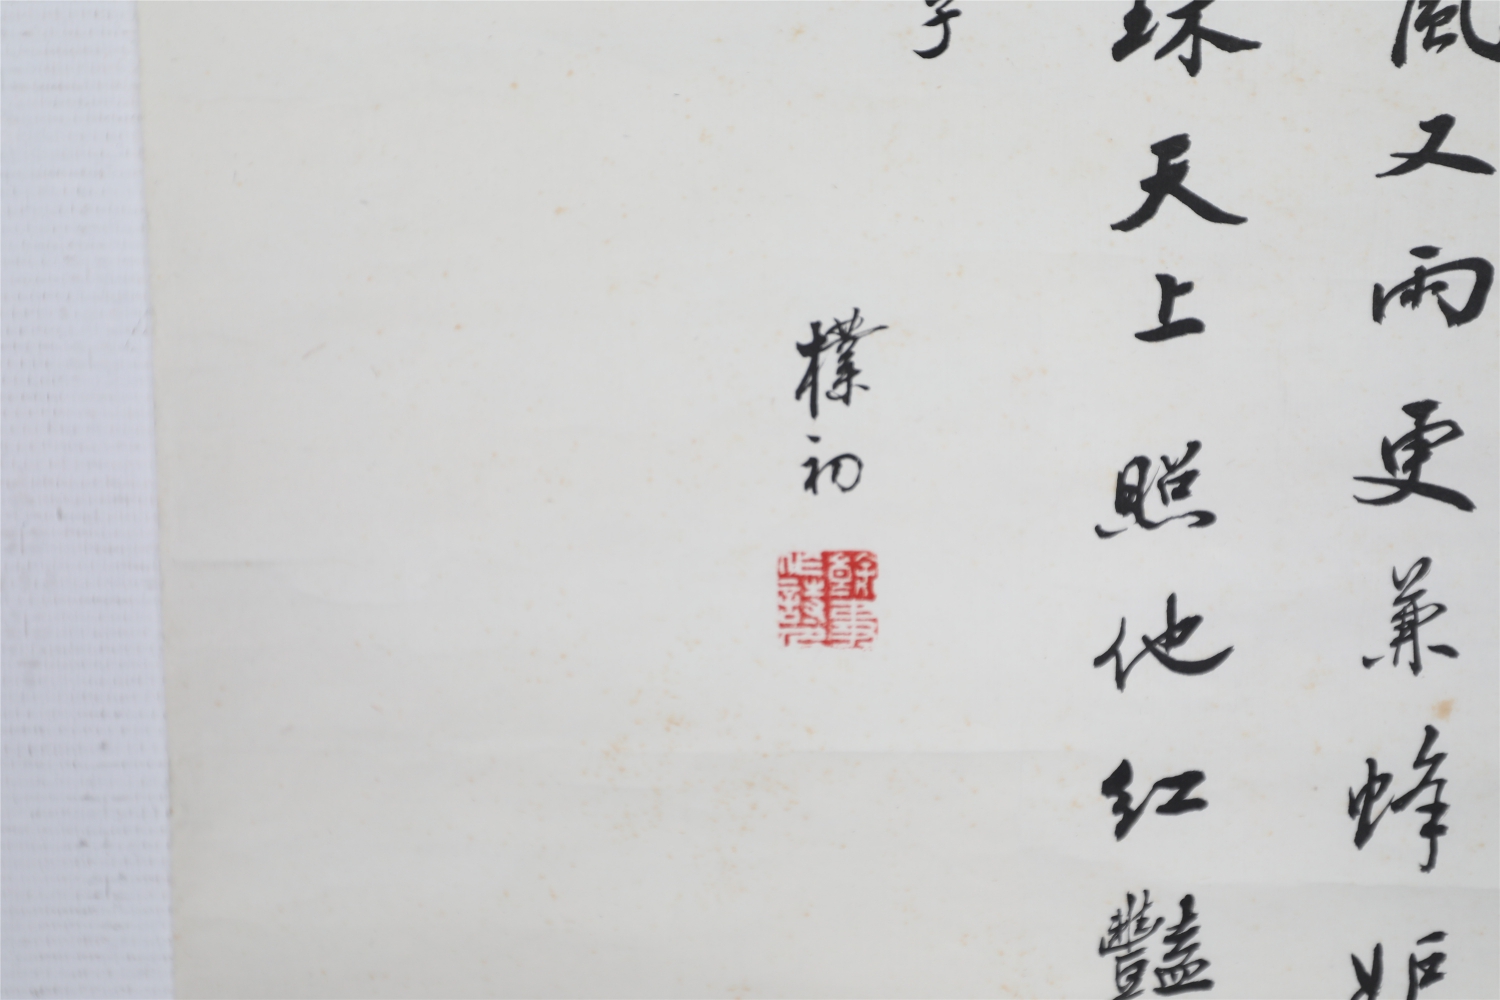 風又雨更兼蜂妒
珠天上照他红豔
字
樸初